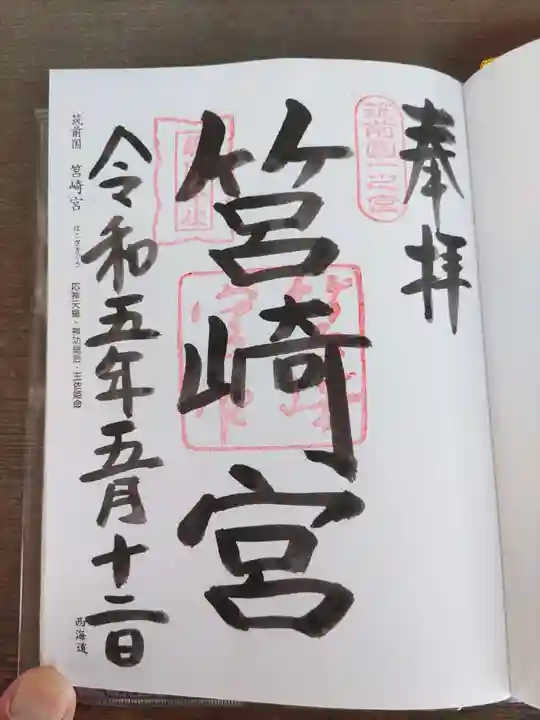 奉拝
筑前國一之宮
筥崎宮
令和五年五月十二日
筑前国 筥崎宮 はこざきぐう 応神天皇・神功皇后・玉依姫命
西海道